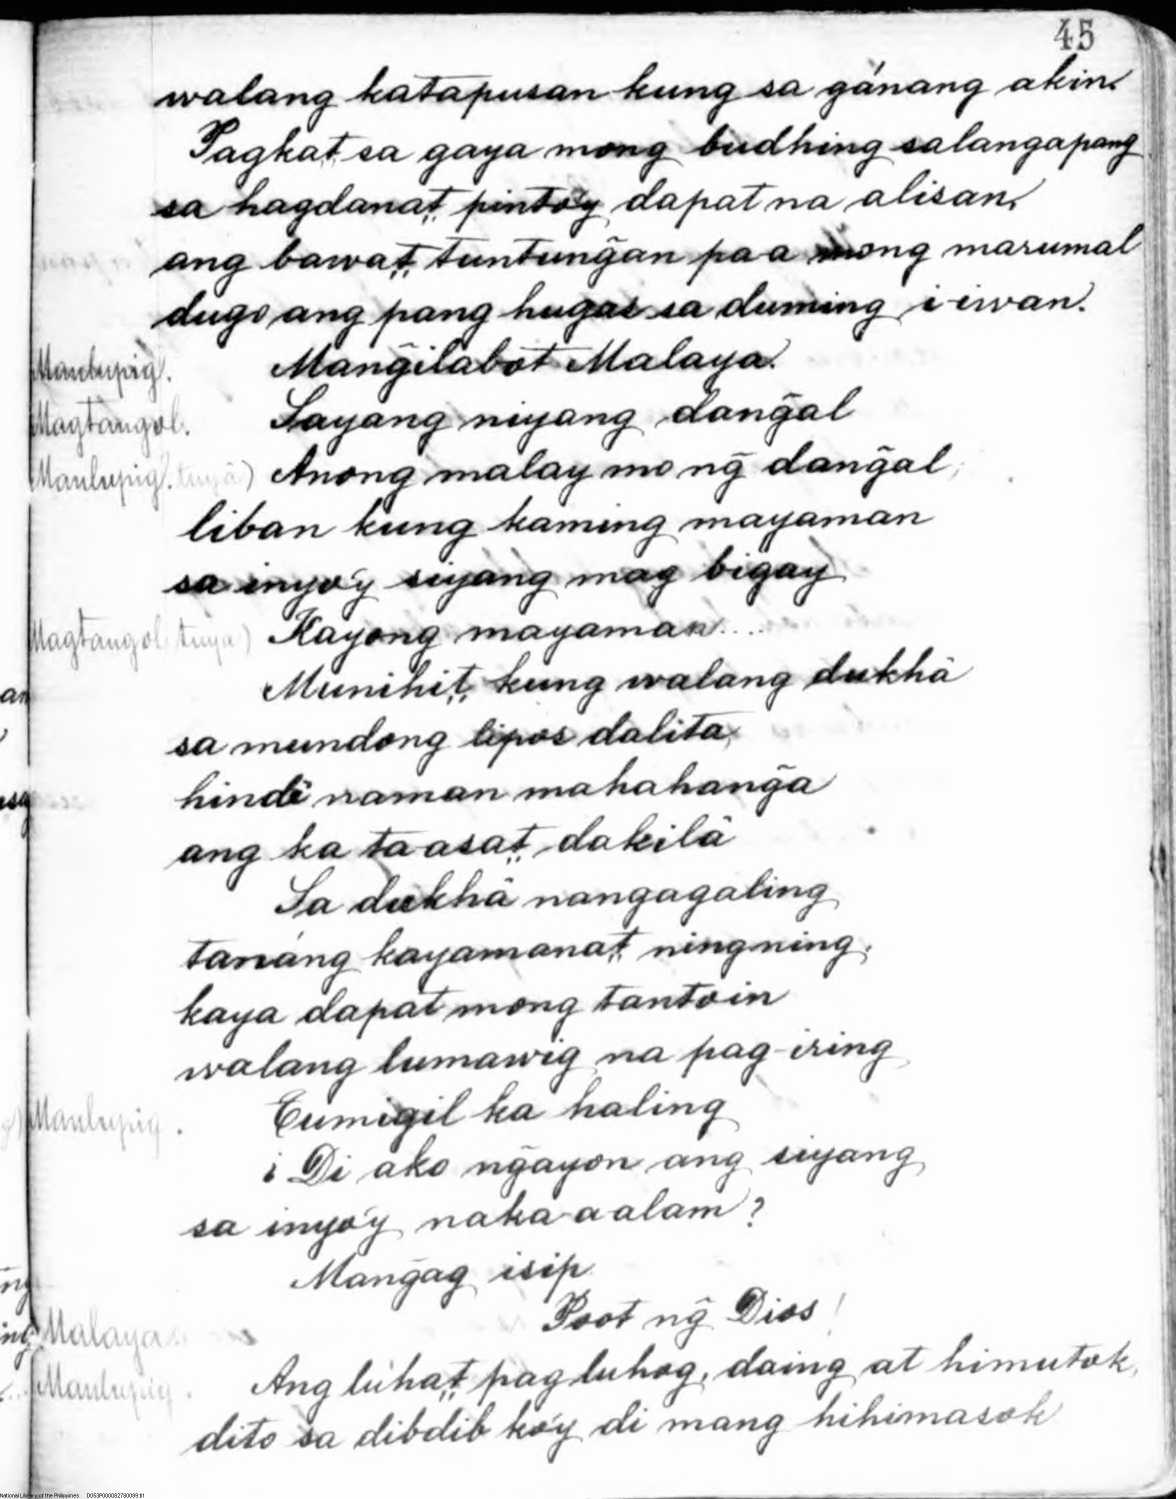 45
walang katapusan kung sa gánang akin.
Pagkat sa gaya mong budhing salangapang
sa hagdanat pinto'y dapat na alisan,
ang bawat tuntung̃an pa a mong marumal
dugo ang pang hugas sa duming i-iwan.
Manlupig. Mang̃ilabot Malaya.
Magtangol. Sayang niyang dang̃al
Manlupig. tuyâ) Anong malay mo ng̃ dang̃al,
liban kung kaming mayaman
sa inyo'y siyang mag bigay
Magtangol tuya) Kayong mayaman....
Munihit kung walang dukhâ
sa mundong lipos dalita,
hindî naman mahahang̃a
ang ka ta-asat dakilâ
Sa dukhâ nangagaling
tanáng kayamanat ningning,
kaya dapat mong tantoin
walang lumawig na pag-iring
Manlupig. Tumigil ka haling
¿Di ako ng̃ayon ang siyang
sa inyo'y naka-aalam?
Mang̃ag isip
Malaya. Poot ng̃ Dios!
Manlupig. Ang lúhat pag luhog, daing at himutok,
dito sa dibdib ko'y di mang hihimasok
National Library of the Philippines